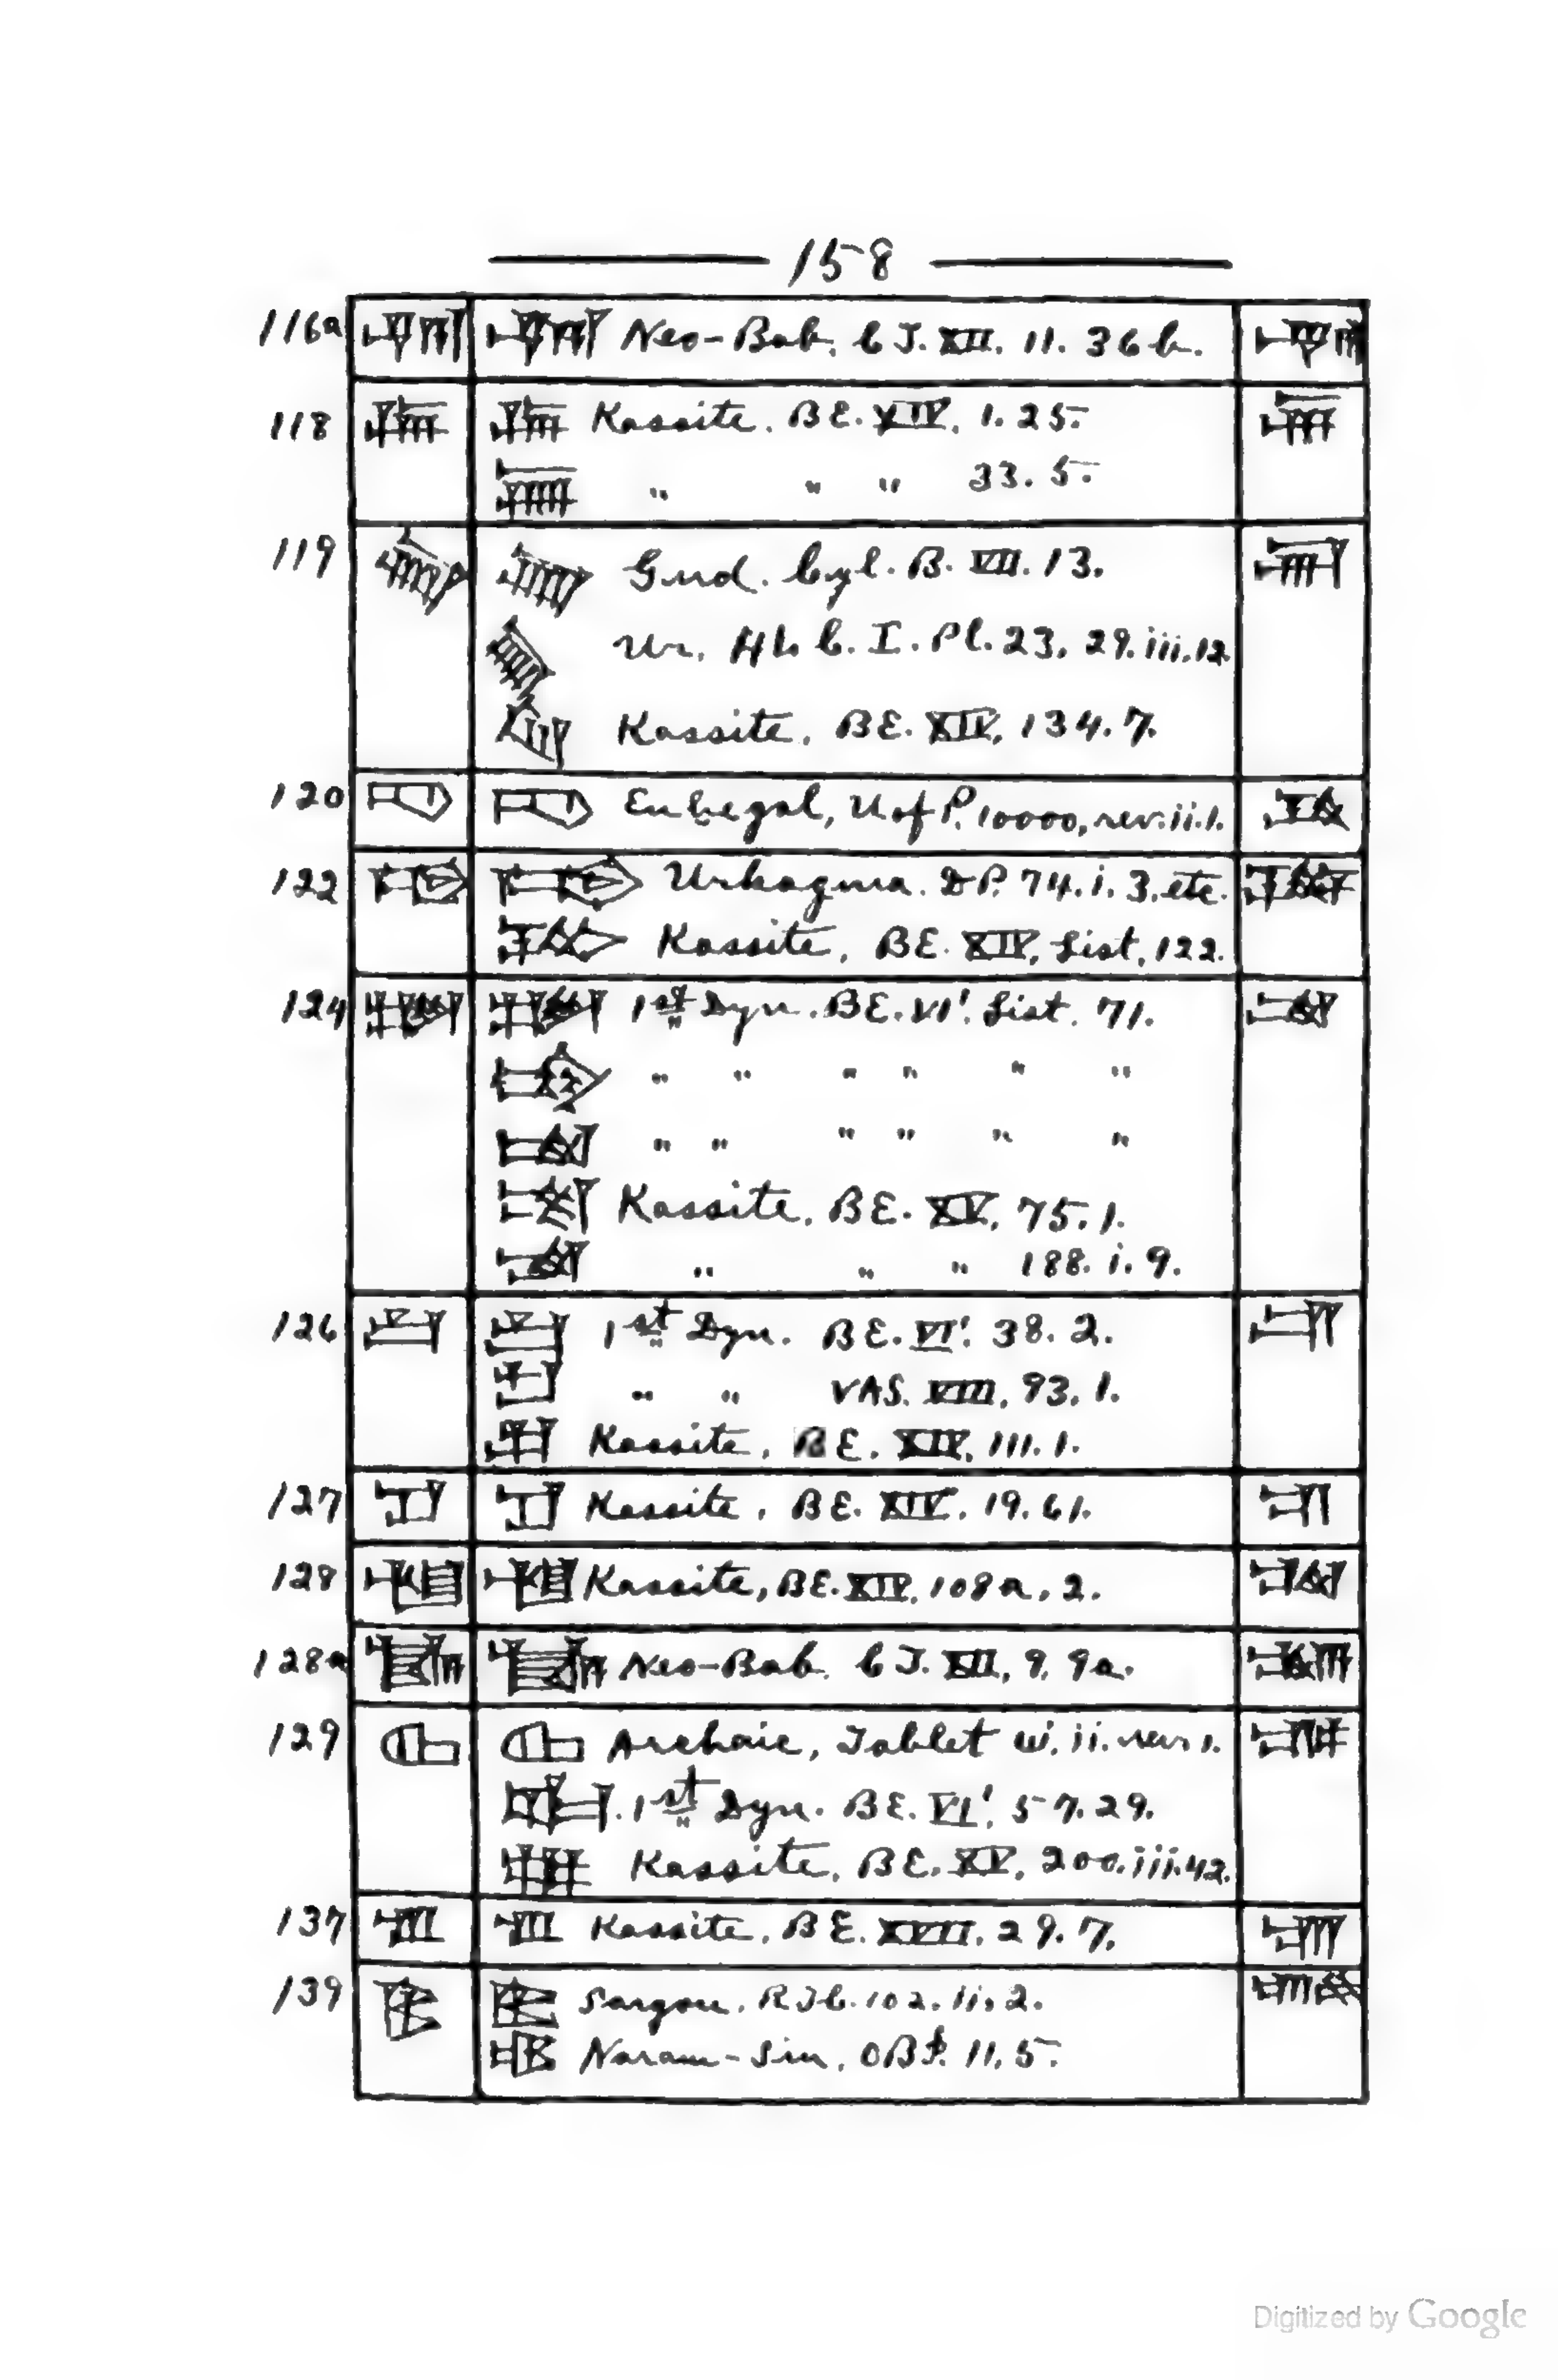 158
116a Neo-Bab. CT. XII. 11. 36 b.
118 Kassite. BE. XIV. 1. 25.
" " " 33. 5.
119 Gud. Cyl. B. VII. 13.
Ur. C. I. Pl. 23. 29. iii. 12.
Kassite, BE. XIV, 134. 7.
120 Enhegal, U of P. 10000, rev. ii. 1.
122 Urkagina. DP. 74. i. 3. etc.
Kassite, BE. XIV, List, 122.
124 1st Dyn. BE. VI¹. List. 71.
" " " " " "
" " " " " "
Kassite, BE. XV, 75. 1.
" " " 188. i. 9.
126 1st Dyn. BE. VI¹. 38. 2.
" " VAS. VIII, 93. 1.
Kassite, BE. XIV, 111. 1.
127 Kassite, BE. XIV. 19. 61.
128 Kassite, BE. XIV, 108a, 2.
128a Neo-Bab. CT. XII, 9. 9a.
129 Archaic, Tablet ii. 1.
1st Dyn. BE. VI¹. 57. 29.
Kassite, BE. XV, 200. iii. 42.
137 Kassite, BE. XVII. 29. 7.
139 Sargon. 102. ii. 2.
Naram-Sin, 11. 5.
Digitized by Google